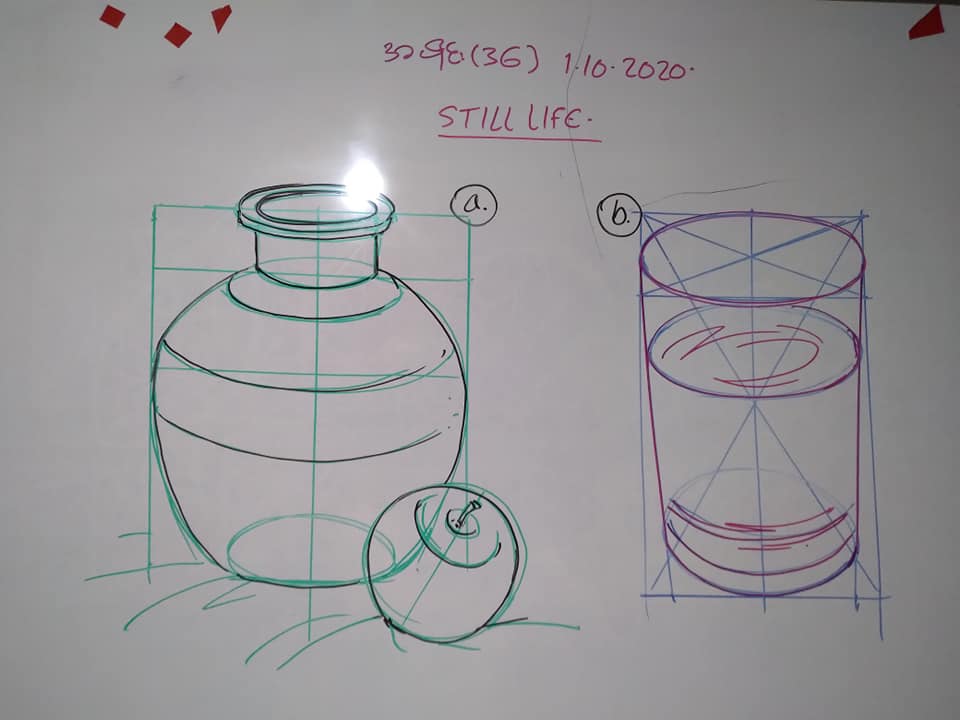 (36) 1.10.2020.
STILL LIFE.
a.
b.